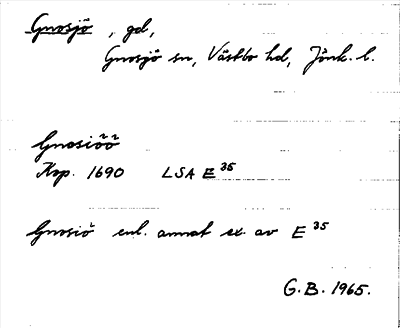 Gnosjö, gd,
Gnosjö sn, Västbo hd, Jönk. l.
Gnosiöö
Kop. 1690 LSA E 35
Gnosiö enl. annat ex. av E 35
G.B. 1965.